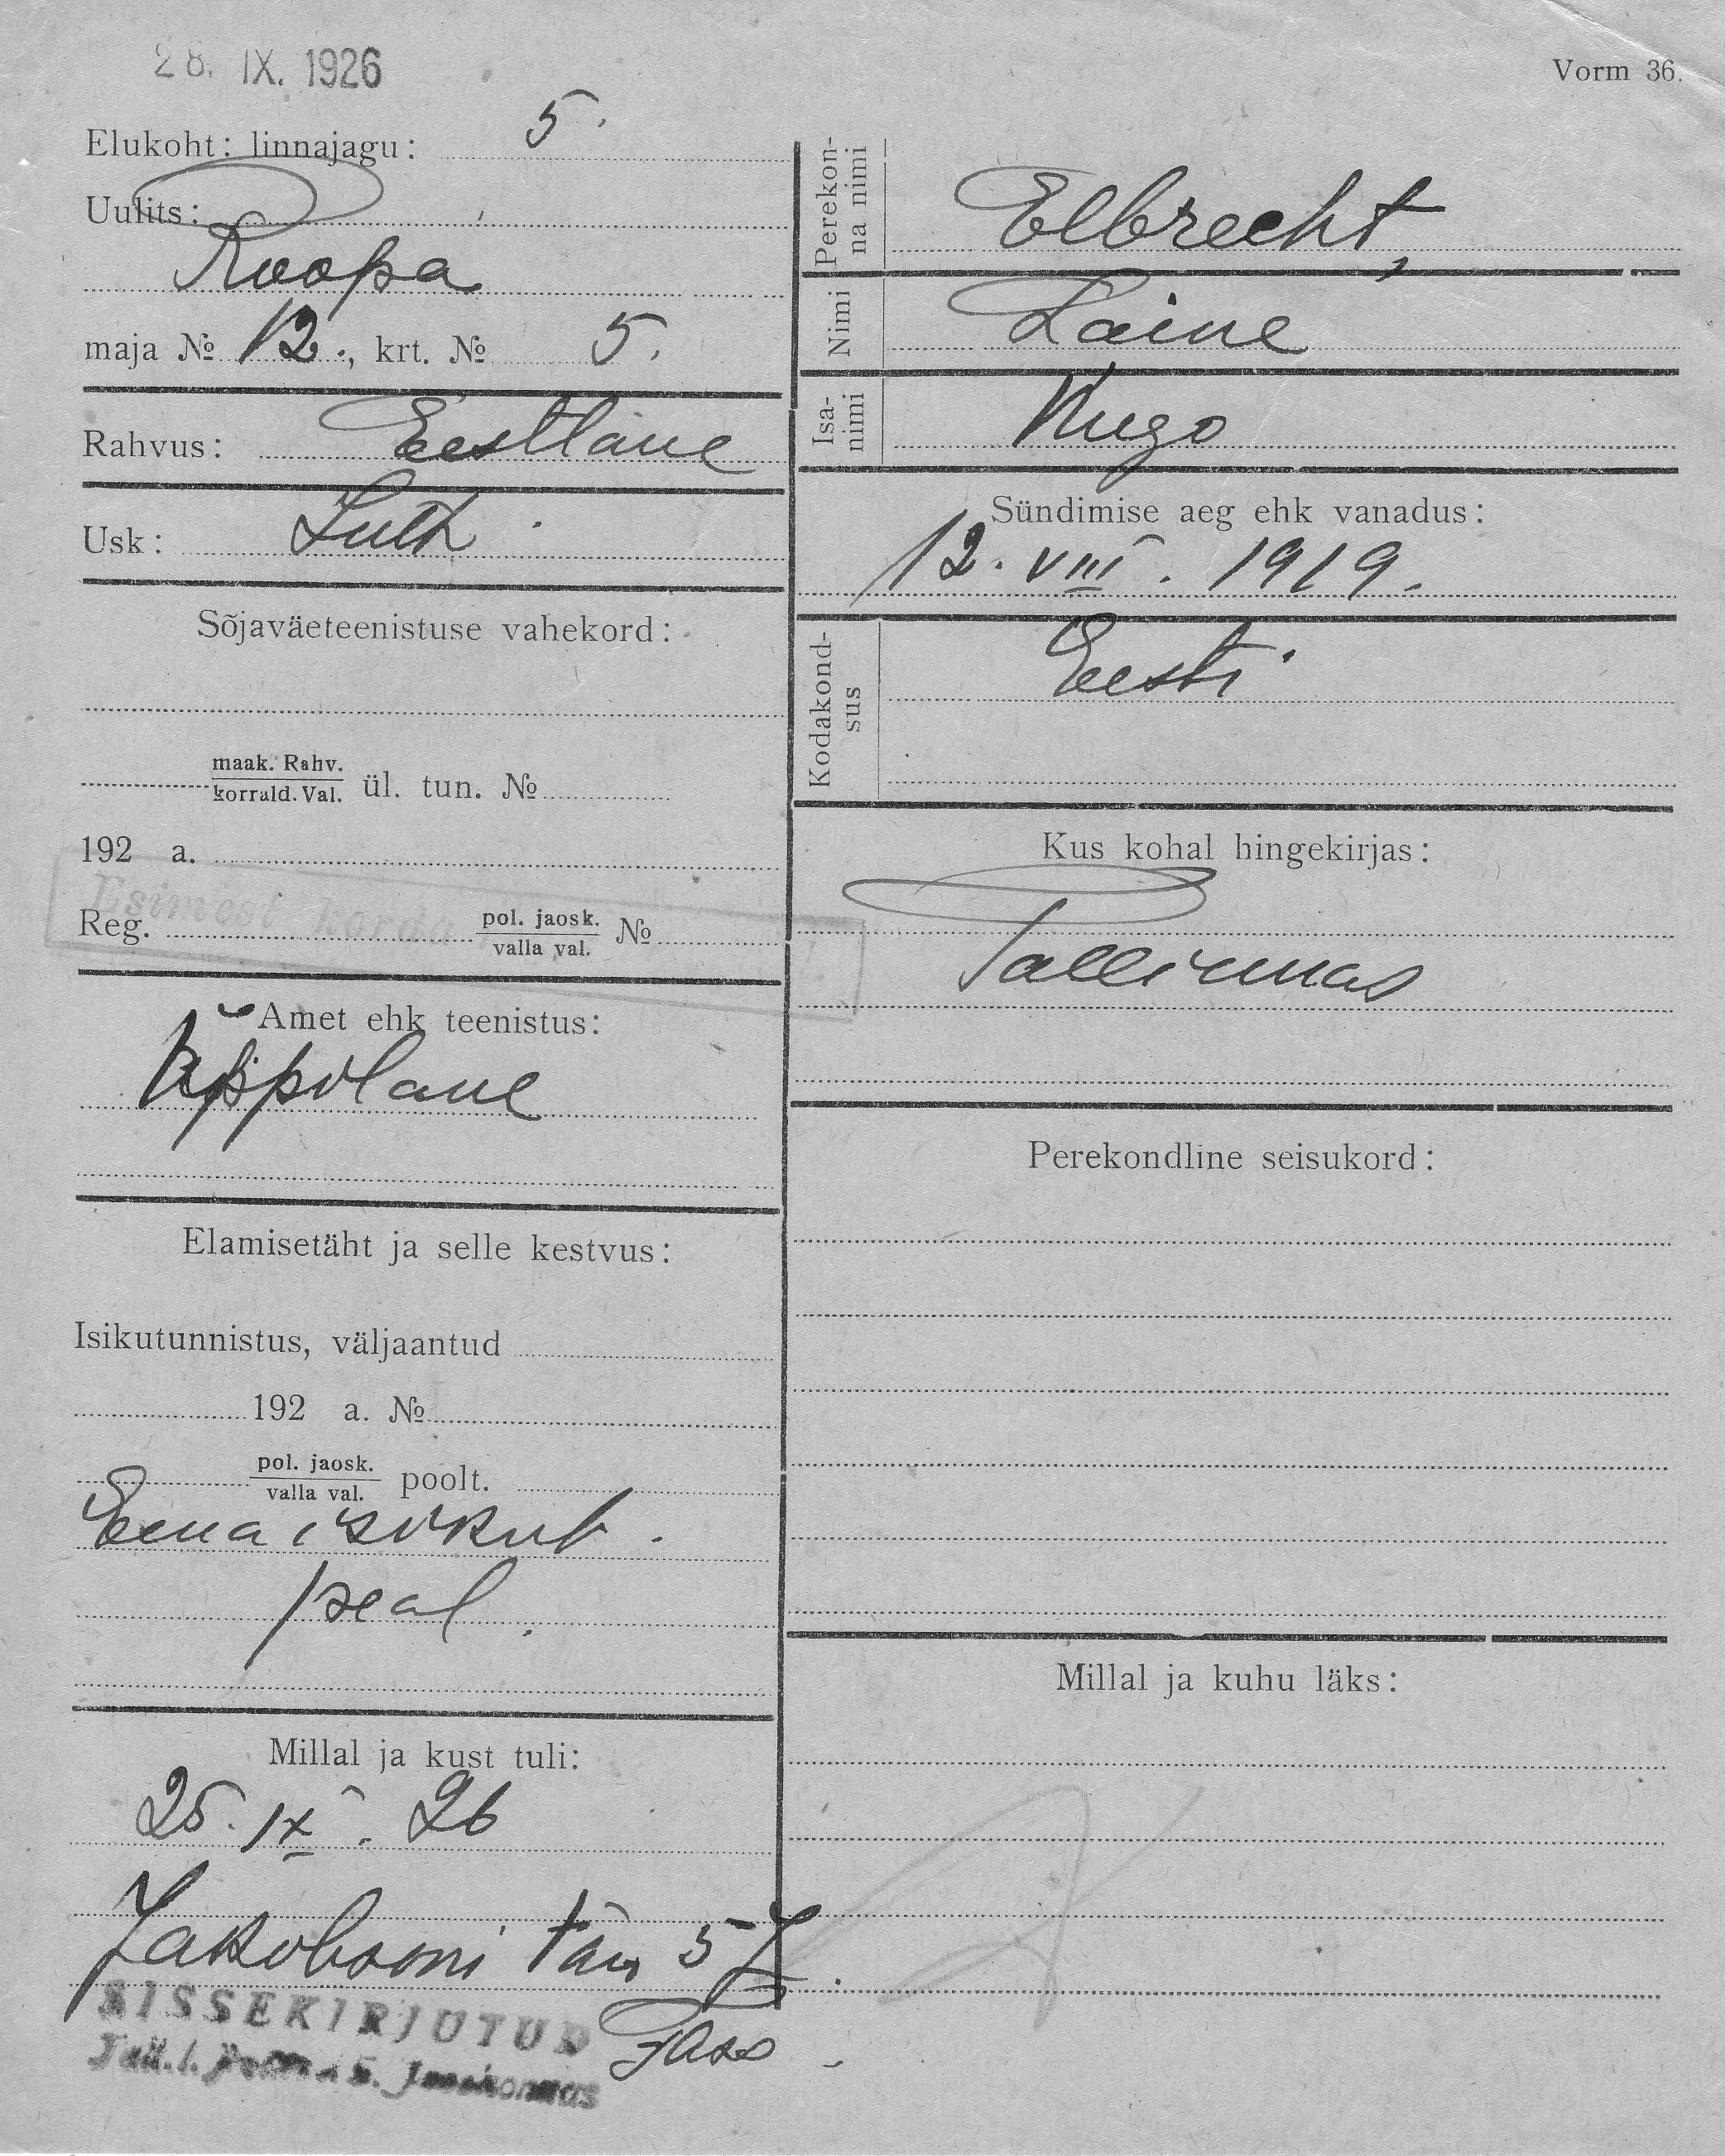 28. IX. 1926
Vorm 36.
Elukoht: linnajagu: 5.
Uulits:
Roopa
maja № 12., krt. № 5.
Rahvus: Eestlane
Usk: Luth.
Sõjaväeteenistuse vahekord:
maak. Rahv.
korrald. Val. ül. tun. №
192 a.
Esimest korda
Reg. pol. jaosk.
valla val. №
Amet ehk teenistus:
Õppilane
Elamisetäht ja selle kestvus:
Isikutunnistus, väljaantud
192 a. №
pol. jaosk.
valla val. poolt.
Ema isikut.
peal.
Millal ja kust tuli:
25. IX. 26
Jakobsoni tän 57.
SISSEKIRJUTUD
Tall. l. 5. Jaoskonnas
Perekon-
na nimi Elbrecht,
Nimi Laine
Isa-
nimi Hugo
Sündimise aeg ehk vanadus:
12. VIII. 1919.
Kodakond-
sus Eesti
Kus kohal hingekirjas:
Tallinnas
Perekondline seisukord:
Millal ja kuhu läks: